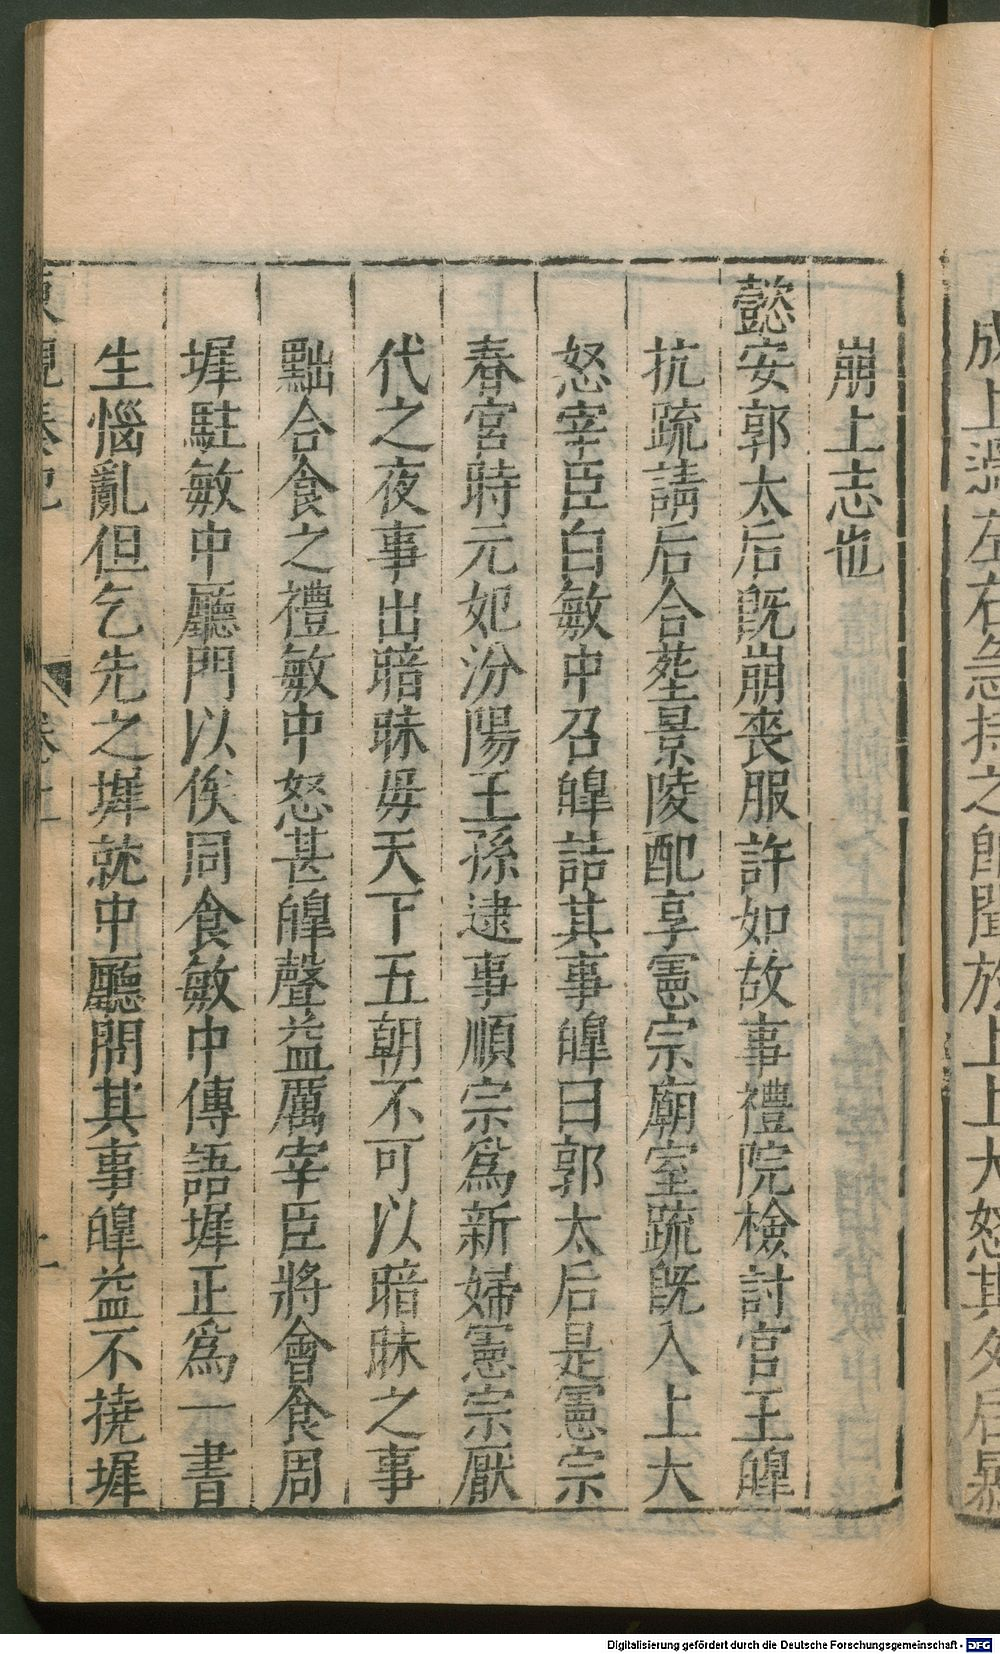 成上過左右急持之卽聞於上上大怒其夕后暴
崩上志也
懿安郭太后旣崩喪服許如故事禮院檢討官王皡
抗疏請后合葬景陵配享憲宗廟室疏旣入上大
怒宰臣白敏中召皡詰其事皡曰郭太后是憲宗
春宮時元妃汾陽王孫逮事順宗爲新婦憲宗厭
代之夜事出暗昧毋天下五朝不可以暗昧之事
黜合食之禮敏中怒甚皡聲益厲宰臣將會食周
墀駐敏中廳門以俟同食敏中傳語墀正爲一書
生惱亂但乞先之墀就中廳問其事皡益不撓墀
東觀奏記 卷上 二
Digitalisierung gefördert durch die Deutsche Forschungsgemeinschaft - DFG